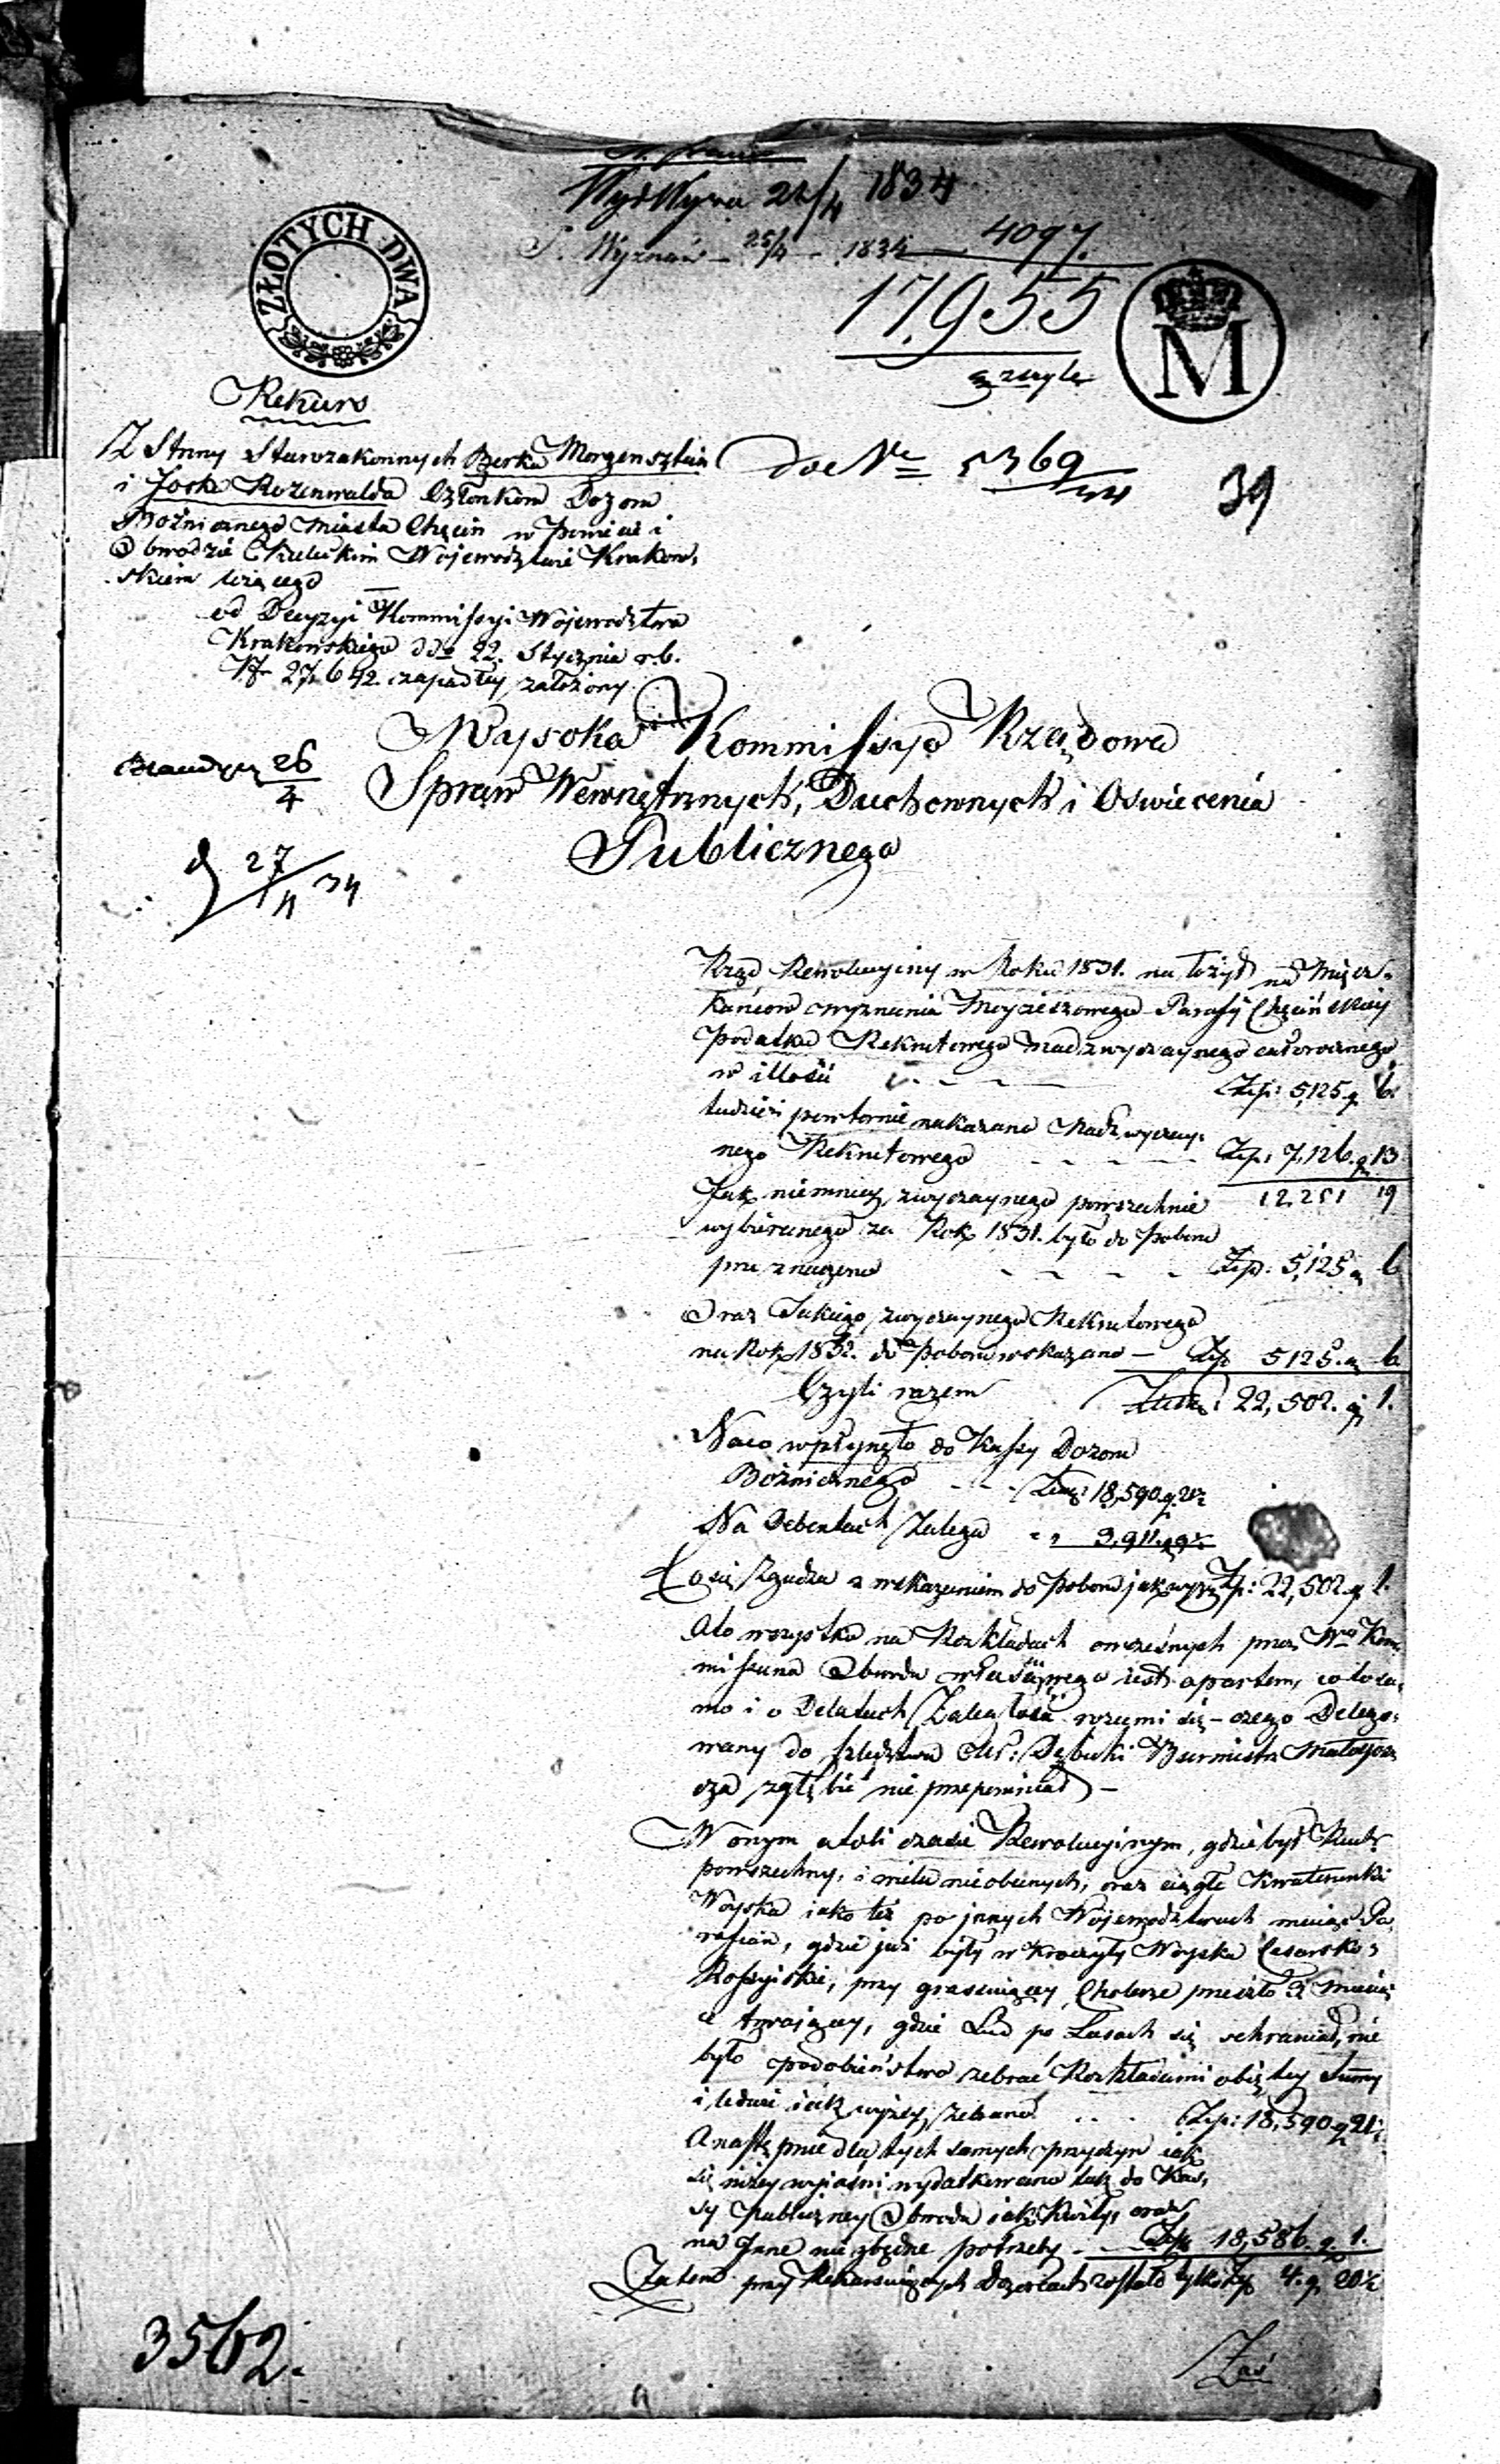 Wyd Wyzn 22/4 1834
Wyznań 25/4 1834 4097.
17955
ZŁOTYCH DWA
M
Rekurs
do Nr 5369/34
39
Ze Strony Starozakonnych Berka Morgensztein
i Joska Rozenwalda Członków Dozoru
Bożniczego Miasta Chęcin w Powiecie i
Obwodzie Kieleckim Województwie Krakow,
skiem leżącego
od Decyzyi Kommissyi Województwa
Krakowskiego ddo 22. Stycznia r.b.
Nr 27,642. zapadłey założony
Wysoka Kommissya Rządowa
Spraw Wewnętrznych, Duchownych i Oświecenia
Publicznego
26/4
27/4 34
Rząd Rewolucyiny w Roku 1831. nałożył na Miesz=
kańców wyznania Moyżeszowego Parafii Chęcińskiey
Podatku Rekrutowego Nadzwyczaynego całorocznego
w illości Złp: 5,125 g 6.
tudzież powtornie nakazano Nadzwyczay=
nego Rekrutowego Złp: 7,126. g 13
12,251 19
Jak niemniey zwyczaynego powszechnie
wybieranego za Rok 1831. było do Poboru
przeznaczono Złp. 5,125 g 6
Oraz Takiego zwyczaynego Rekrutowego
na Rok 1832. do Poboru wskazano — Złp 5125. g 6
Czyli razem 22,502. g 1.
Naco wpłynęło do Kassy Dozoru
Bożniczego 18,590. g. 21½
Na Debentach Zalega " " 3,911. g 9½
Co się zgadza z wskazaniem do Poboru jak wyżey Złp: 22,502 g 1.
A to wszystko na Rozkładach owcześnych przez Wgo Kom
missarza Obwodu właściwego iest oparłem, co to sa,
mo i o Delatach Zaległości rozumi się — czego Delego=
wany do śledztwa Dębicki Burmistrz Małogosz
cza zgłębić nie przepomniał —
W onym atoli czasie Rewolucyinym, gdzie był Ruch
powszechny, i wielu nieobecnych, oraz ciągłe Kwaterunki
Woyska iako też po innych Województwach mieysc Pa,
rafian, gdzie już były wkroczyły Woyska Cesarsko=
Rossyiskie, przy grassuiącey Cholerze przeszło 3 miesią
ce trwaiącey, gdzie Lud po Lasach się schraniał, nie
było podobieństwa zebrać Rozkładami obiętey Summy
i ledwie iak wyżey zebrano Złp: 18,590 g 21½
A następnie dla tych samych przyczyn iak
się niżey wyiaśni wydatkowano tak do Kas,
sy Publiczney Obwodu iak Kwity, oraz
na Inne niezbędne potrzeby — Złp 18,586. g. 1.
Zatem przy Rekursuiących Dozorcach zostało tylko Złp 4. g 20½
Zaś
3562.